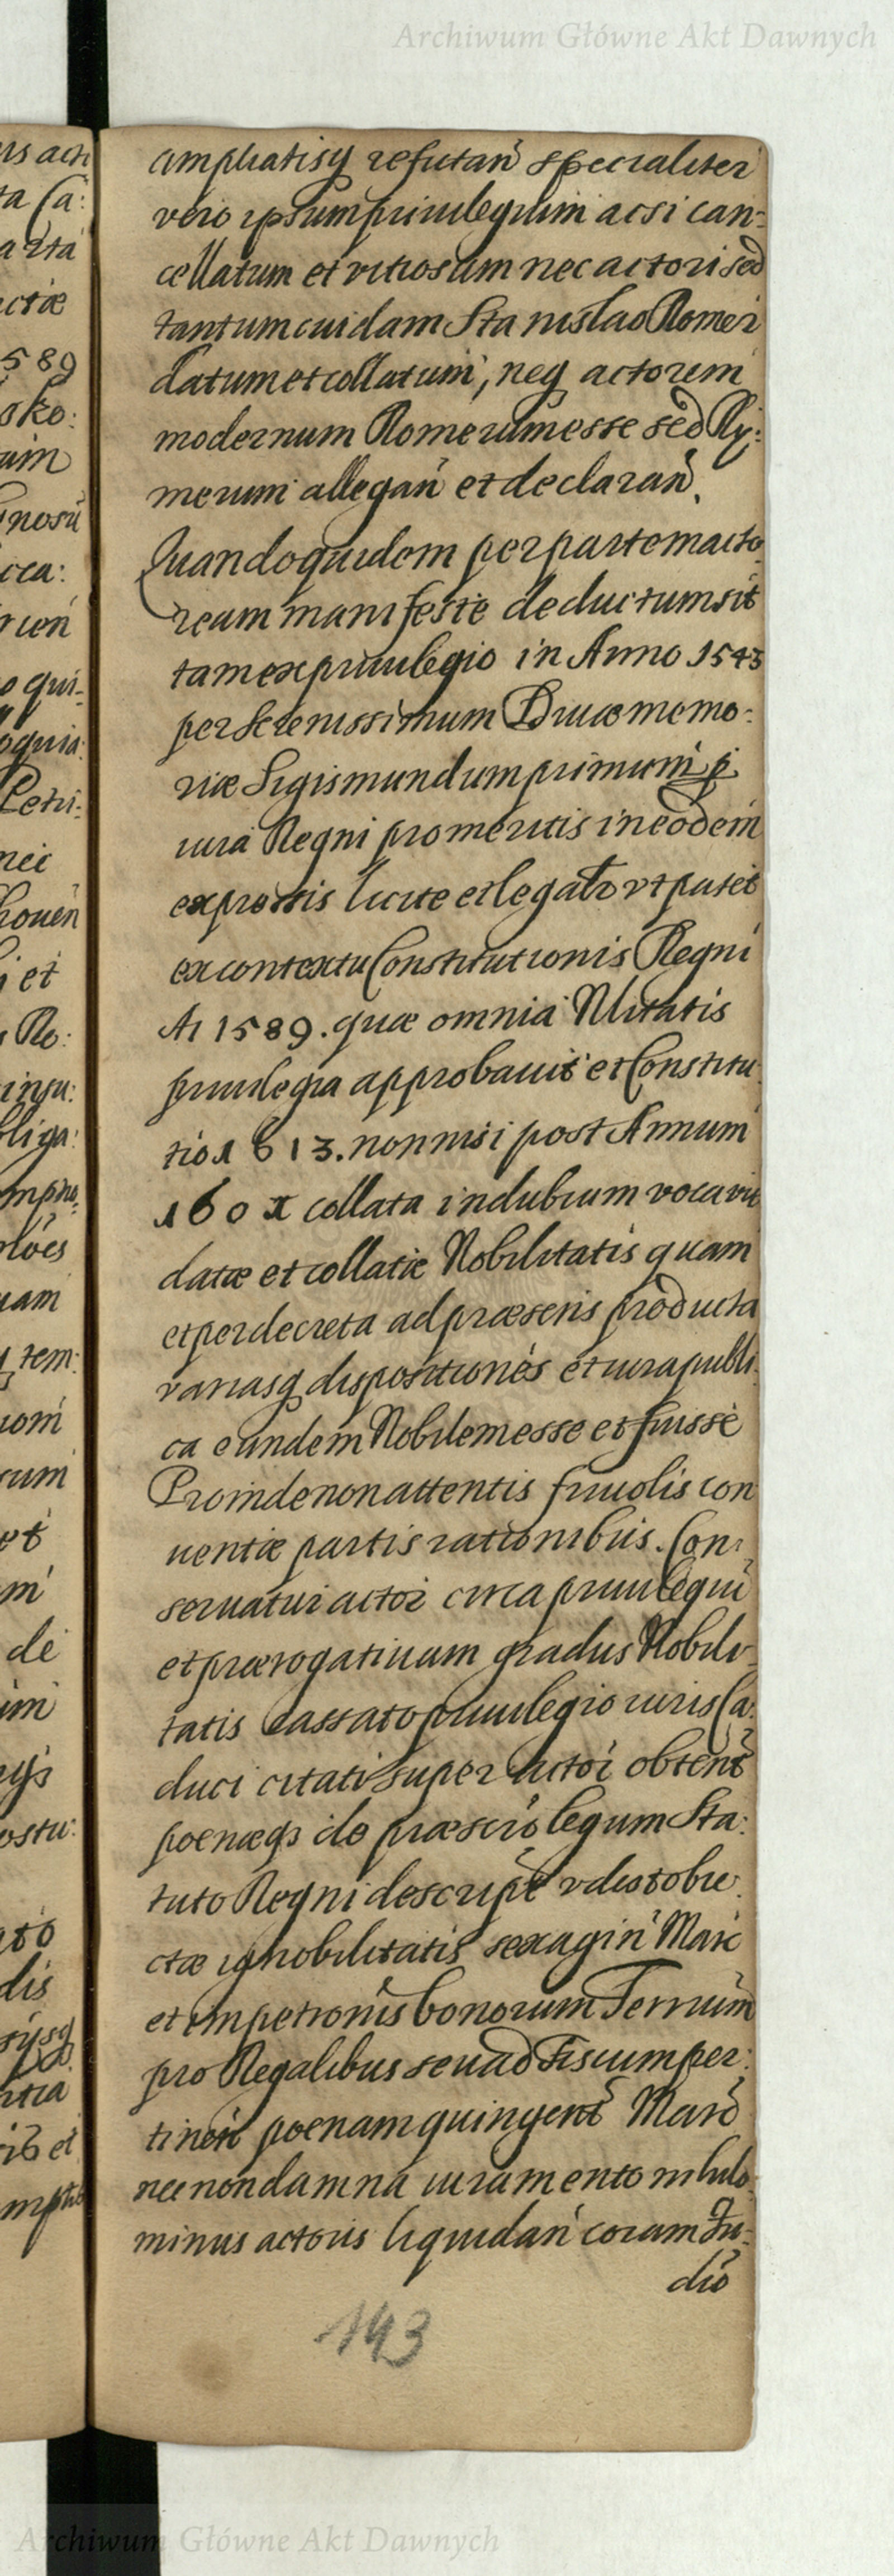 Archiwum Główne Akt Dawnych
ampliatisq refutan specialiter
vero ipsum priuilegium acsi can-
cellatum et vitiosum nec actori sed
tantum cuidam Stanislao Romer
datum et collatum, neq actorem
modernum Romerum esse sed Ry:
merum allegan et declaran.
Quandoquidem per partem acto-
ream manifeste deductum sit
tam ex priuilegio in Anno 1543
per Serenissimum Diuae memo-
riae Sigismundum primum p
iura Regni pro meritis in eodem
expressis licite et legato vt patet
ex contextu Constitutionis Regni
Ai 1589. quae omnia Nlitatis
priuilegia approbauit et Constitu-
tio 1613. nonnisi post Annum
1601 collata in dubium vocavit
datae et collatae Nobilitatis quam
et per decreta ad praesens producta
variasq dispositiones et iura publi-
ca eundem Nobilem esse et fuisse
Proinde non attentis friuolis con
uentae partis rationibus. Con-
seruatur actor circa priuilegiu
et praerogatiuam gradus Nobili-
tatis cassato priuilegio iuris Ca-
duci citati super actor obtent
poenaeqs de praescro legum Sta:
tuto Regni descripte obie-
ctae ignobilitatis sexagin Marc
et impetronis bonorum Terrium
pro Regalibus seu ad Fiscum per:
tinen poenam quingent Marc
nec non damna iuramento nihilo-
minus actoris liquidan coram Ju-
dio
143
urs acti
ta Ca:
arta
ctae
589
sko:
uim
gnosu
cca:
rien
o qui-
oquia:
Petri:
nei
houen
i et
Ro:
insu:
bliga:
uam
tem:
rum
et
de
ostu:
dis
Archiwum Główne Akt Dawnych